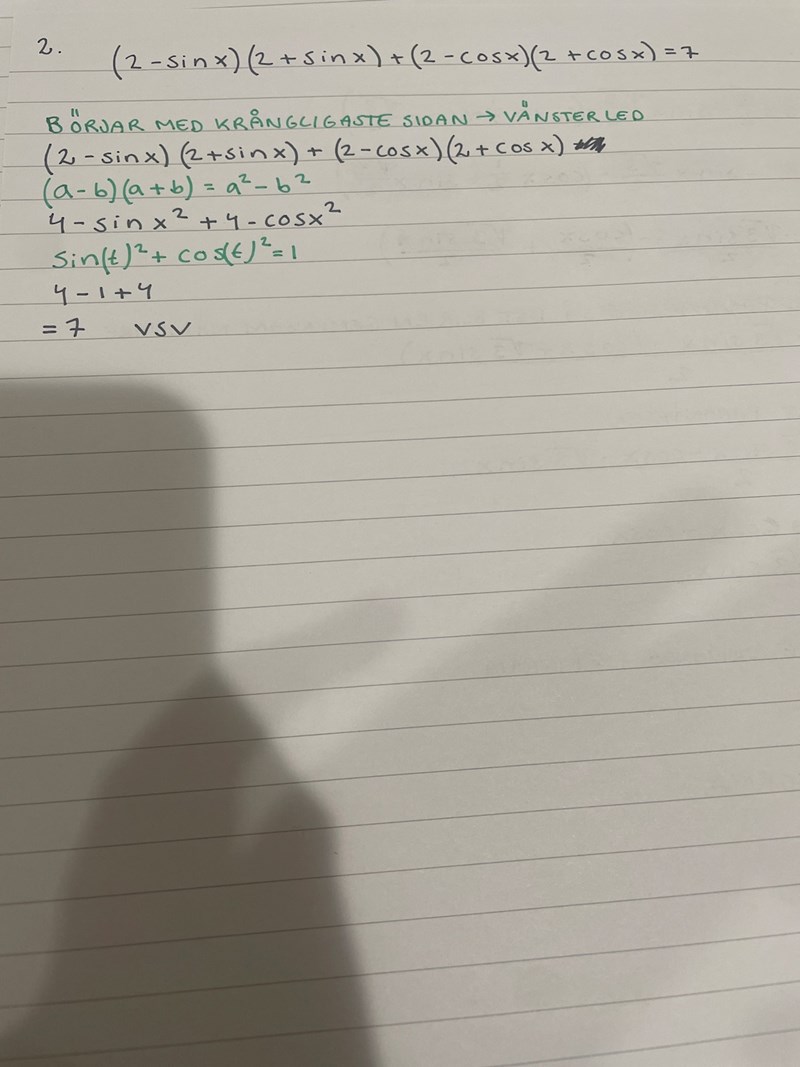 2. (2-sinx)(2+sinx)+(2-cosx)(2+cosx)=7
BÖRJAR MED KRÅNGLIGASTE SIDAN → VÄNSTERLED
(2-sinx)(2+sinx)+(2-cosx)(2+cosx)
(a-b)(a+b)=a²-b²
4-sinx²+4-cosx²
sin(t)²+cos(t)²=1
4-1+4
=7 VSV